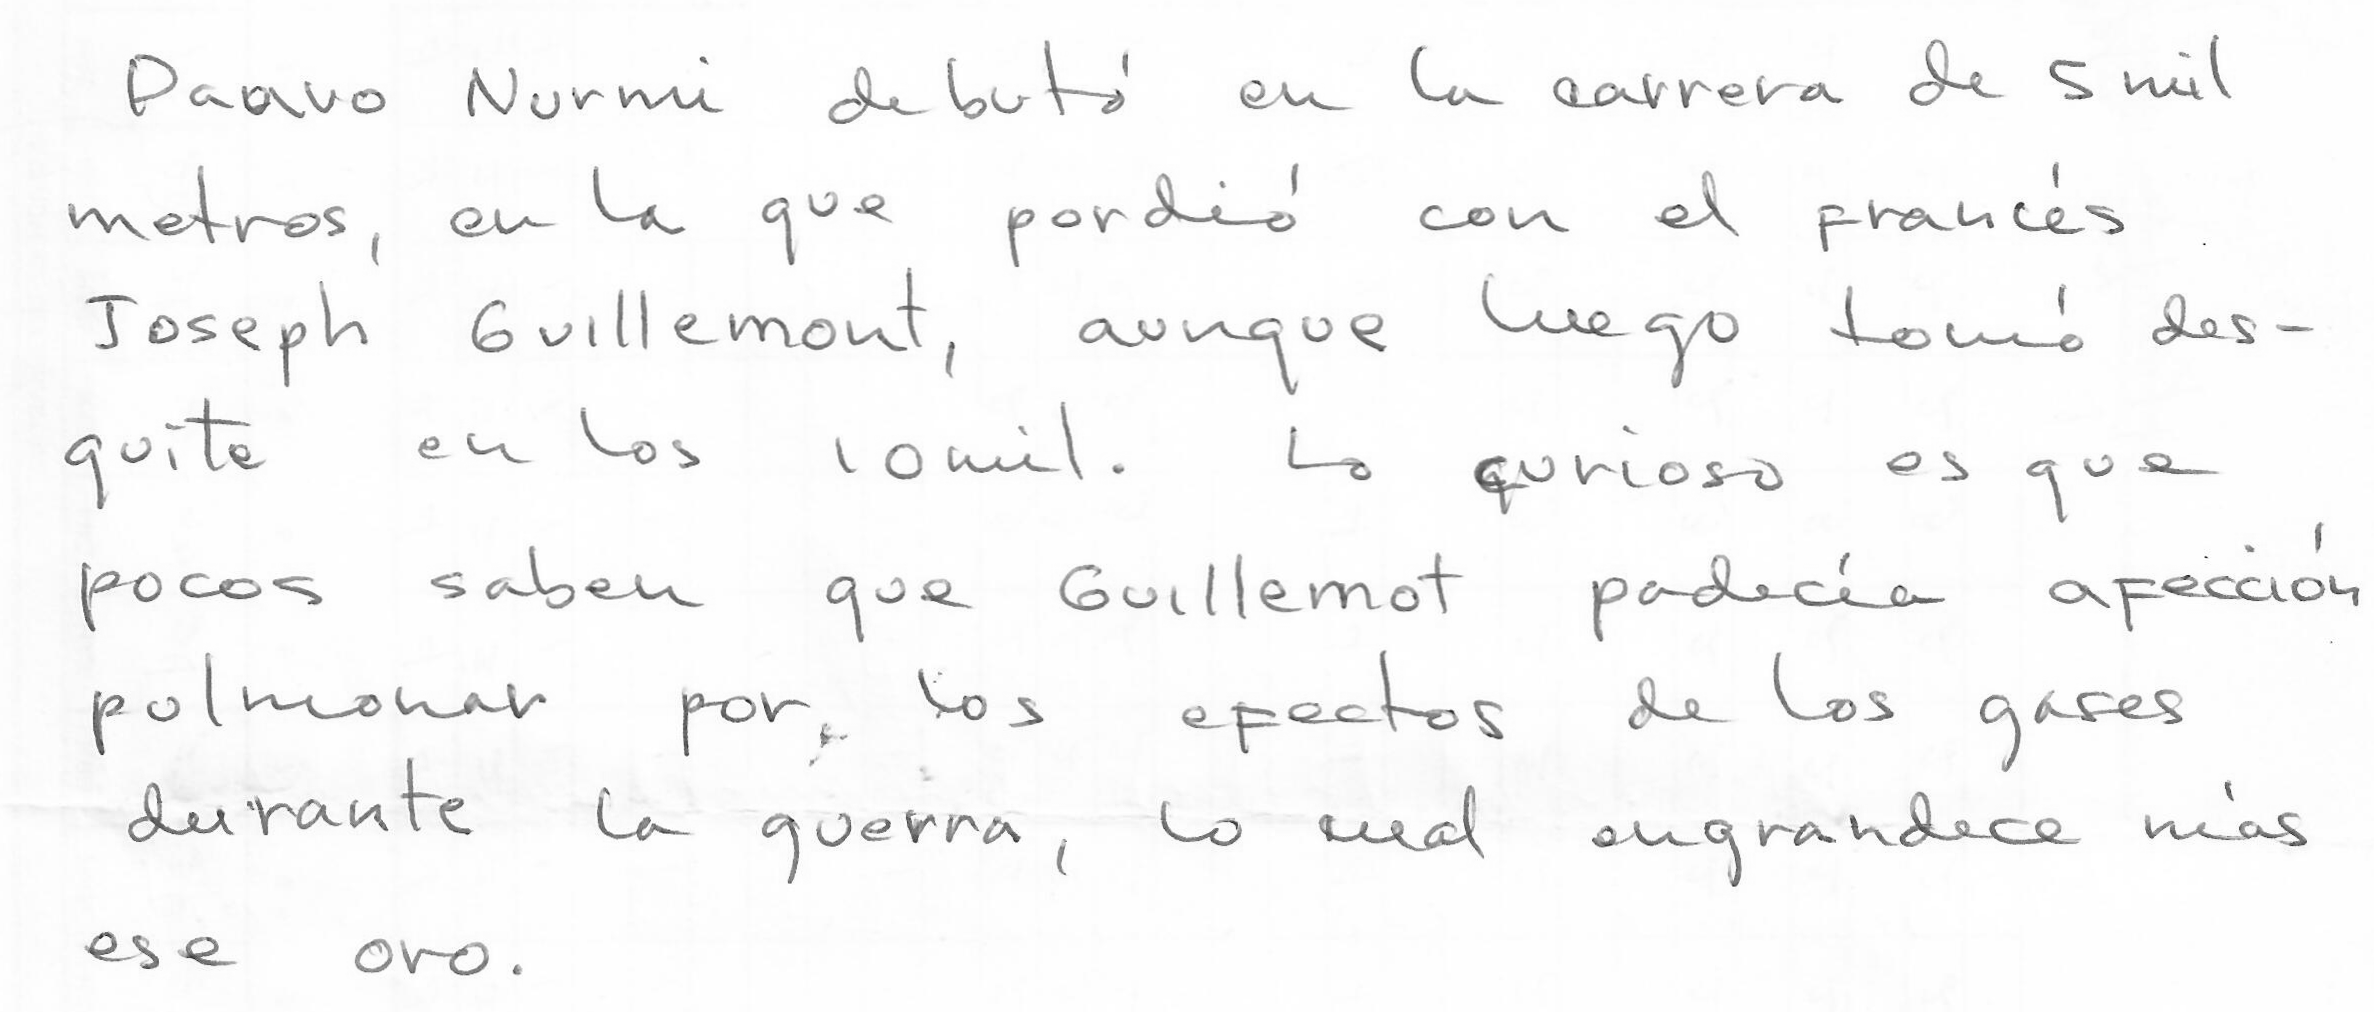 Paavo Nurmi debutó en la carrera de 5 mil
metros, en la que perdió con el francés
Joseph Guillemont, aunque luego tomó des-
quite en los 10 mil. Lo curioso es que
pocos saben que Guillemot padecía afección
pulmonar por los efectos de los gases
durante la guerra, lo cual engrandece más
ese oro.